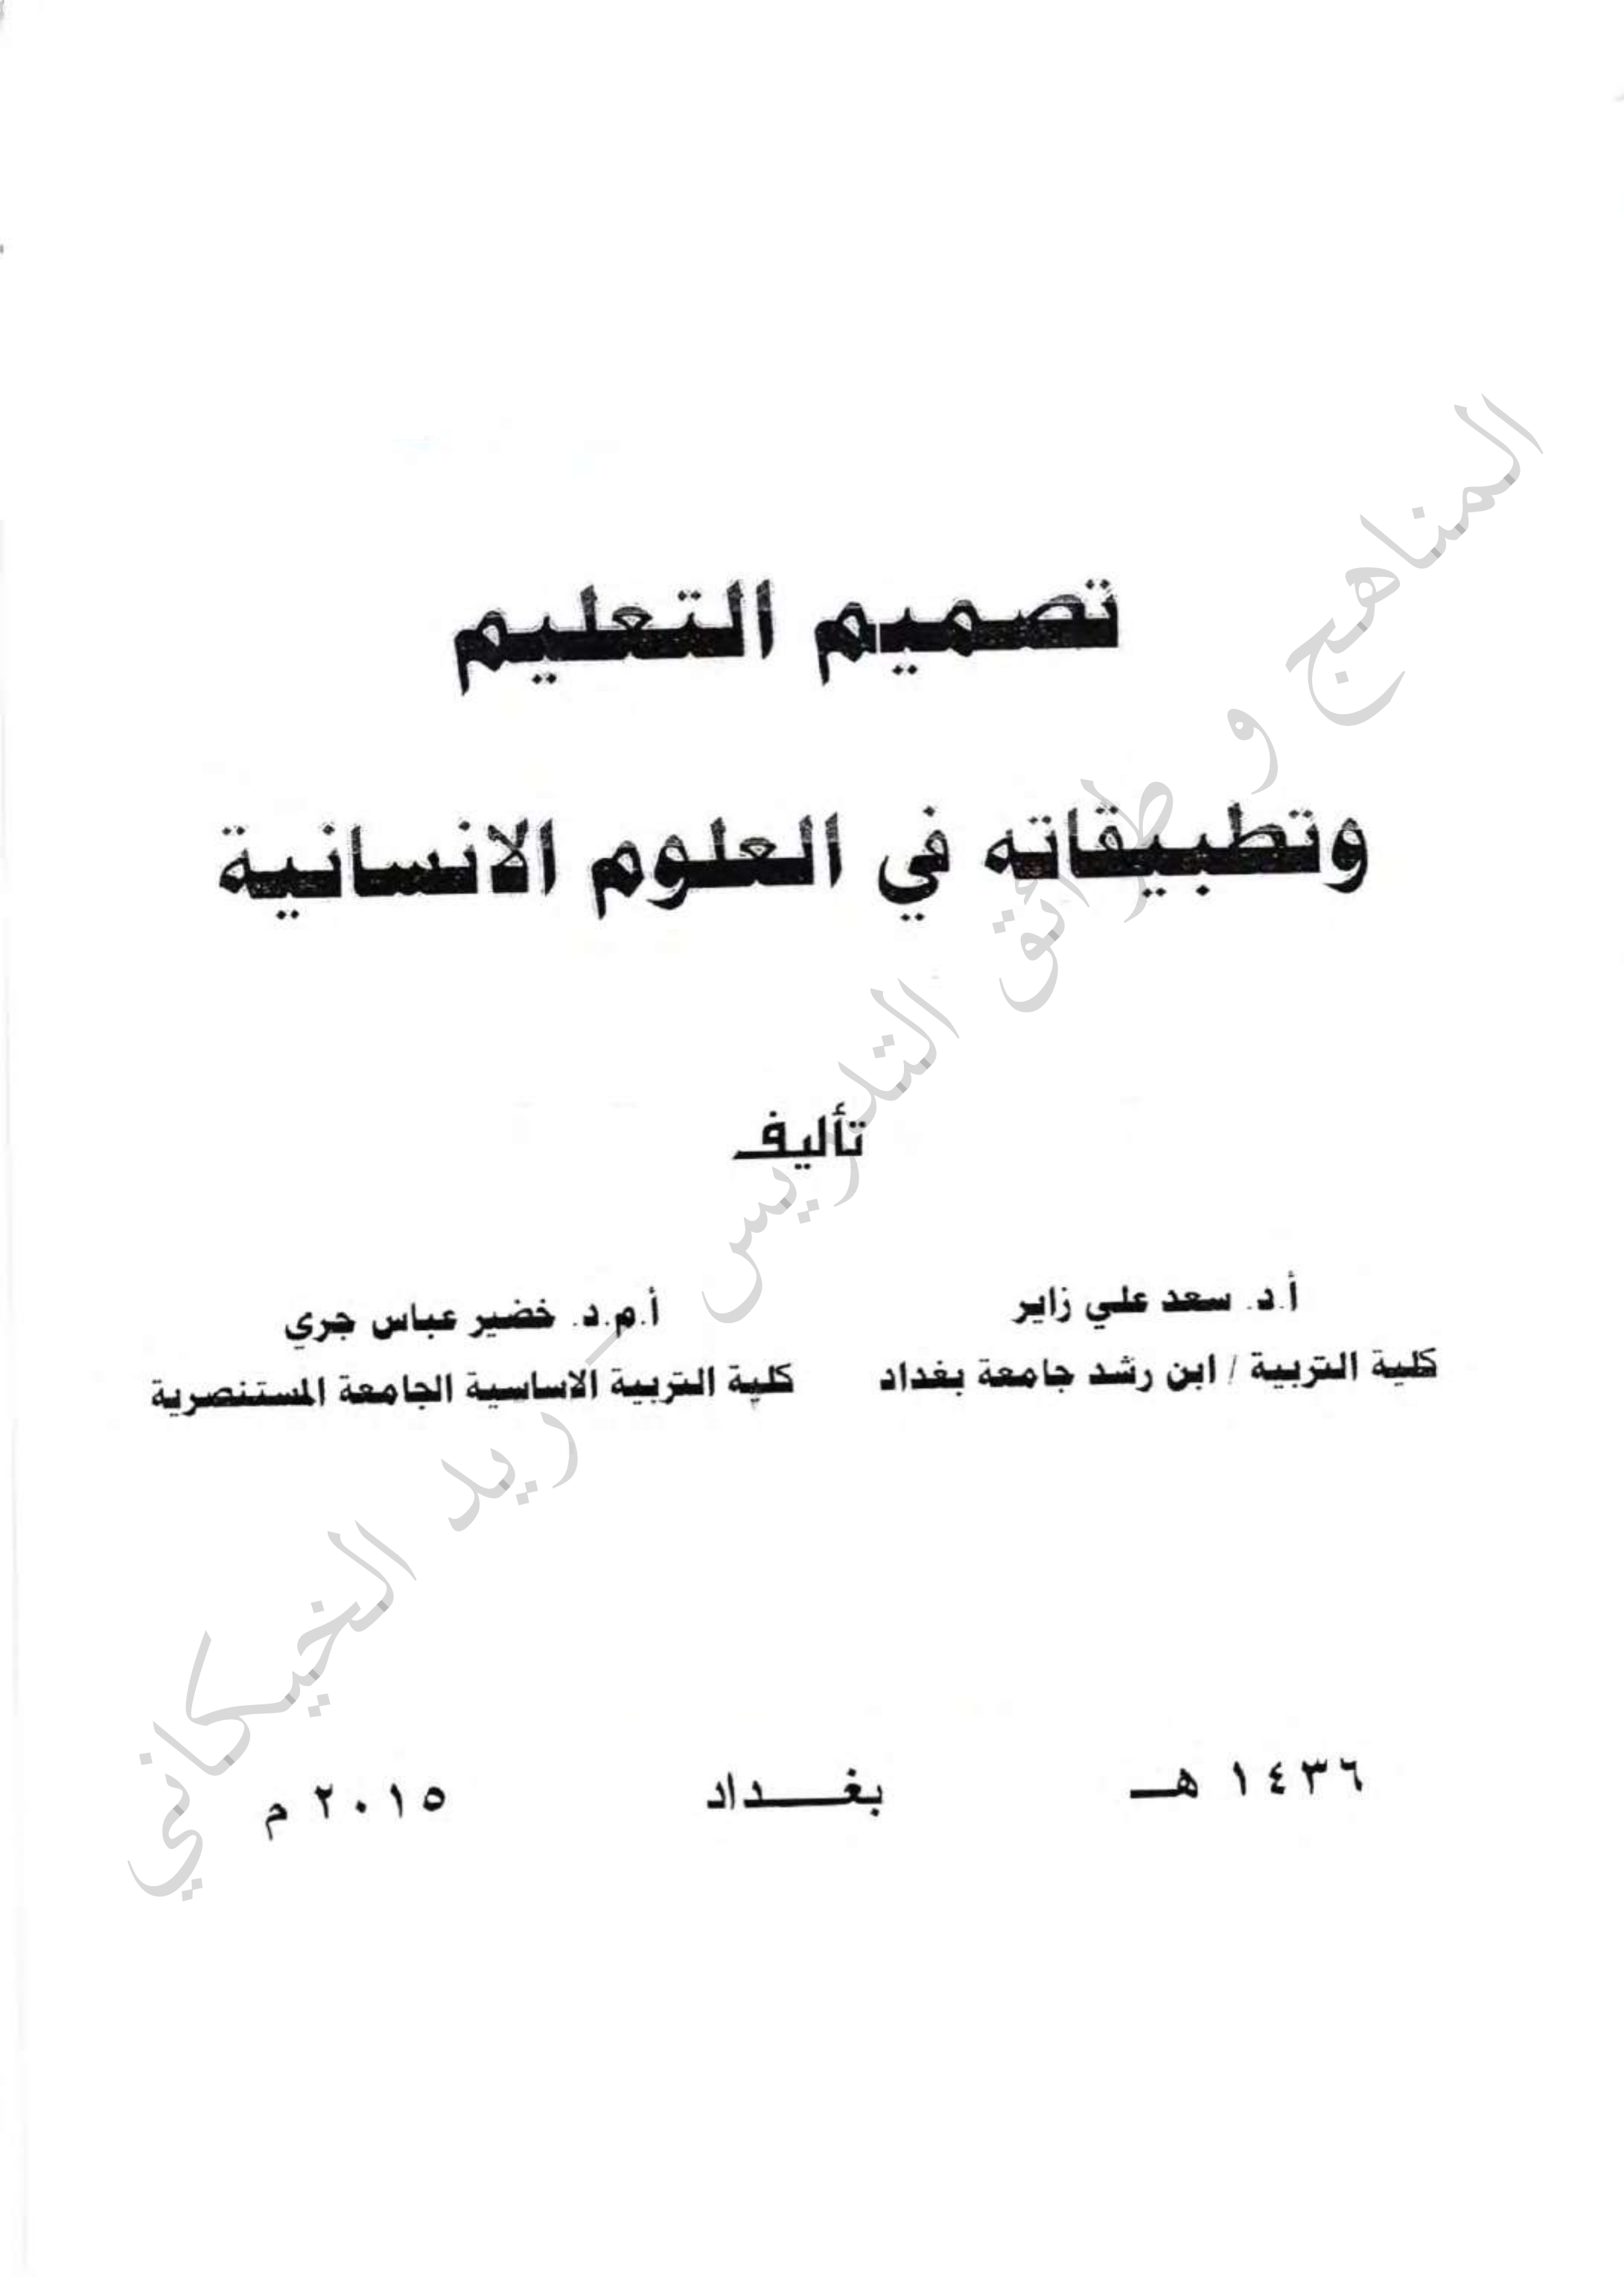 تصميم التعليم
وتطبيقاته في العلوم الانسانية
تأليف
أ.د. سعد علي زاير
كلية التربية / ابن رشد جامعة بغداد
أ.م.د. خضير عباس جري
كلية التربية الاساسية الجامعة المستنصرية
١٤٣٦ هـ بغـــداد ٢٠١٥ م
المناهج و طرائق التدريس – ريد الخيكاني